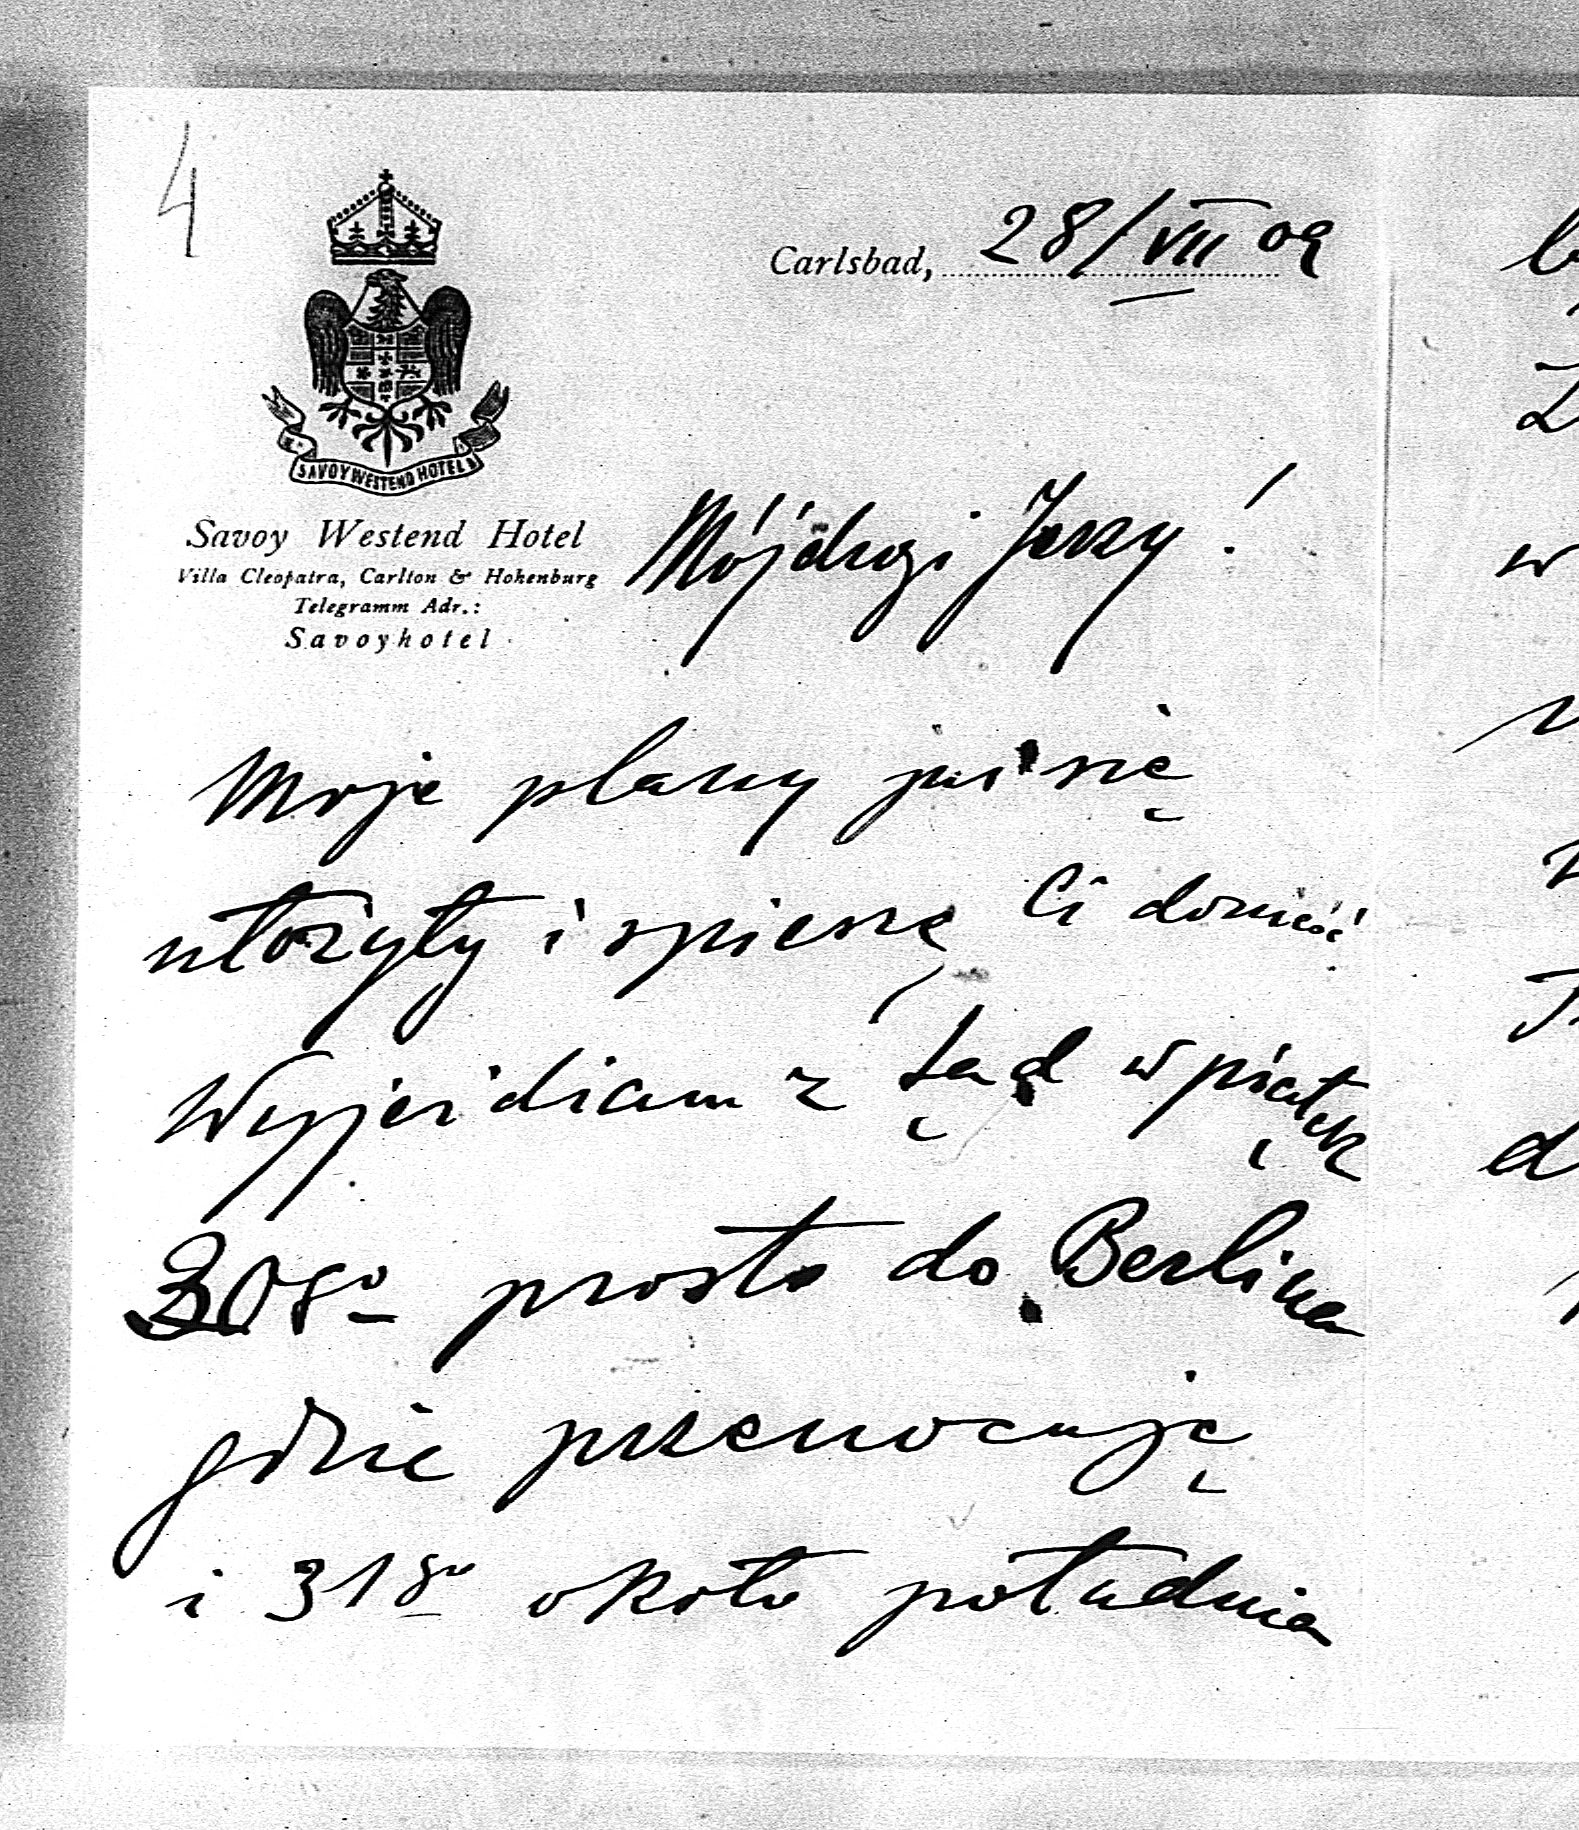 4
Carlsbad, 28/VII 09
SAVOY WESTEND HOTEL
Savoy Westend Hotel
Villa Cleopatra, Carlton & Hohenburg
Telegramm Adr.:
Savoyhotel
Mój drogi Jerzy!
Moje plany już się
ułożyły i spieszę Ci donieść
Wyjeżdżam z tąd w piątek
30go prosto do Berlina
gdzie przenocuję
i 31go około południa